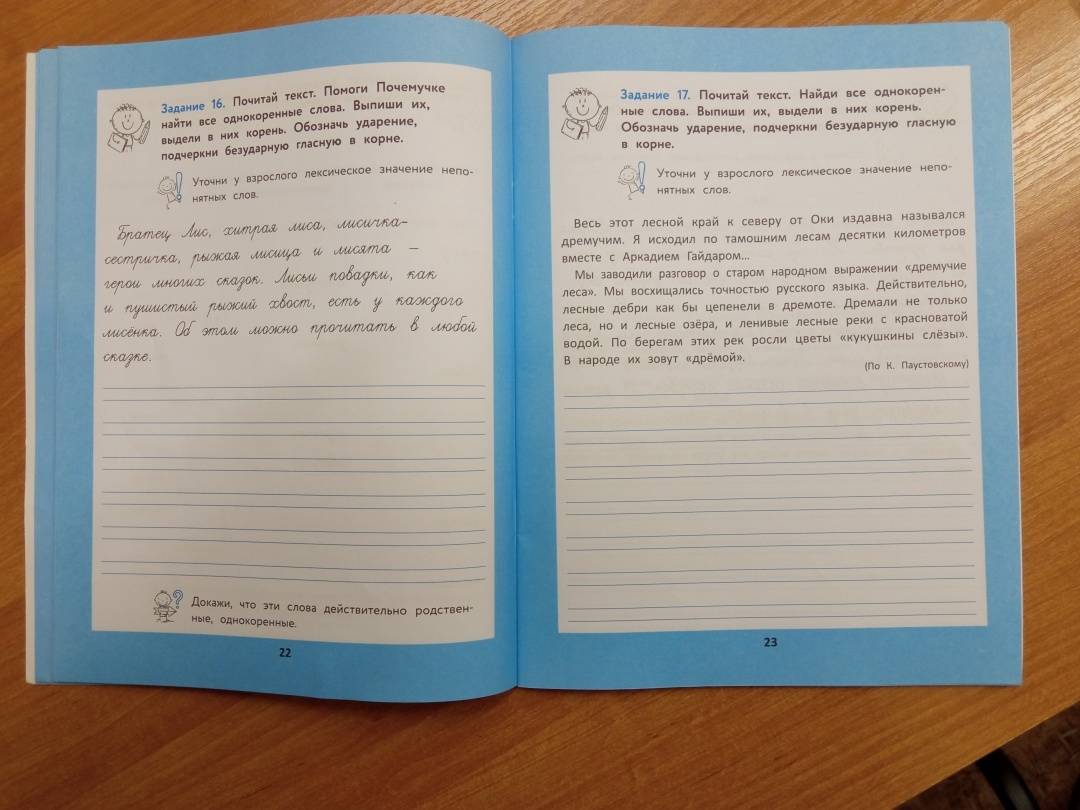 Задание 16. Почитай текст. Помоги Почемучке
найти все однокоренные слова. Выпиши их,
выдели в них корень. Обозначь ударение,
подчеркни безударную гласную в корне.
Уточни у взрослого лексическое значение непо-
нятных слов.
Братец Лис, хитрая лиса, лисичка-
сестричка, рыжая лисица и лисята –
герои многих сказок. Лисьи повадки, как
и пушистый рыжий хвост, есть у каждого
лисёнка. Об этом можно прочитать в любой
сказке.
Докажи, что эти слова действительно родствен-
ные, однокоренные.
22
Задание 17. Почитай текст. Найди все однокорен-
ные слова. Выпиши их, выдели в них корень.
Обозначь ударение, подчеркни безударную гласную
в корне.
Уточни у взрослого лексическое значение непо-
нятных слов.
Весь этот лесной край к северу от Оки издавна назывался
дремучим. Я исходил по тамошним лесам десятки километров
вместе с Аркадием Гайдаром...
Мы заводили разговор о старом народном выражении «дремучие
леса». Мы восхищались точностью русского языка. Действительно,
лесные дебри как бы цепенели в дремоте. Дремали не только
леса, но и лесные озёра, и ленивые лесные реки с красноватой
водой. По берегам этих рек росли цветы «кукушкины слёзы».
В народе их зовут «дрёмой».
(По К. Паустовскому)
23